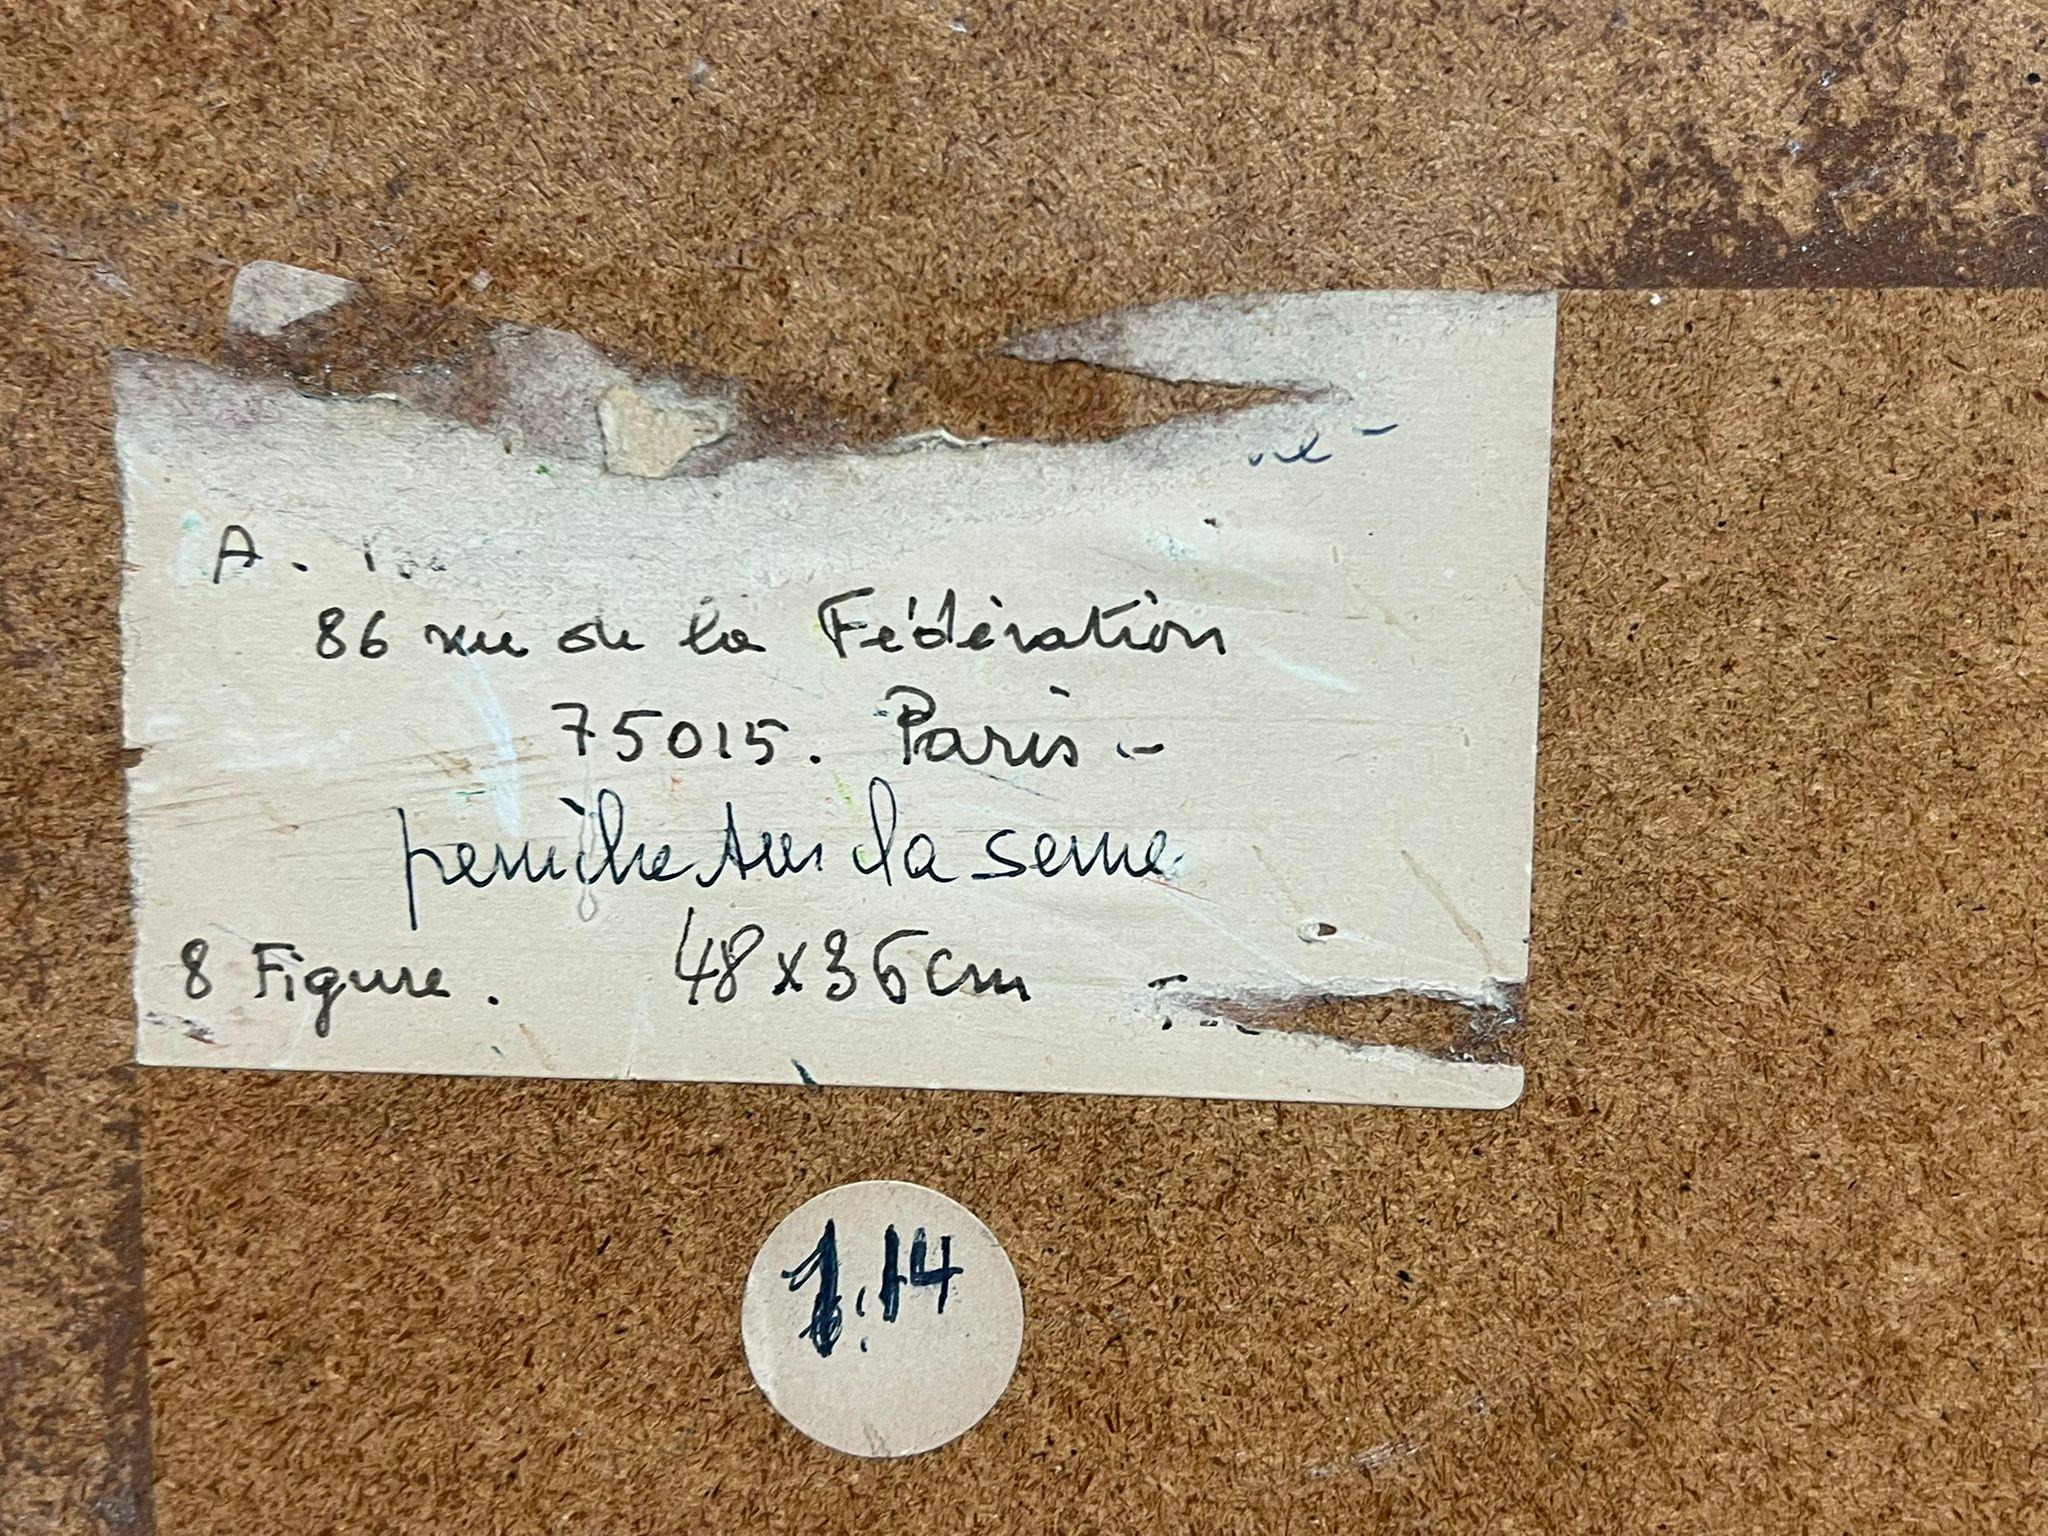 A.
86 rue de la Fédération
75015. Paris -
peniche sur la seine
8 Figure. 48x36cm
1.14